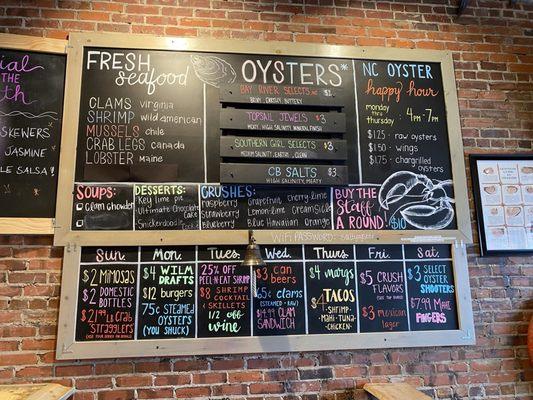 the
SKEWERS
JASMINE
SALSA!
FRESH
seafood
CLAMS virginia
SHRIMP wild american
MUSSELS chile
CRAB LEGS canada
LOBSTER maine
OYSTERS*
BAY RIVER SELECTS
BRINY, CRUSTY, BUTTERY
TOPSAIL JEWELS $3
SOUTHERN GIRL SELECTS $3
MEDIUM SALINITY, EARTHY, CLEAN
CB SALTS $3
HIGH SALINITY, MEATY
NC OYSTER
happy hour
monday -
thursday 4 pm - 7pm
$1.25 raw oysters
$1.50 wings
$1.75 chargrilled oysters
SOUPS:
clam chowder
DESSERTS:
Key lime pie
Ultimate Chocolate Cake
CRUSHES:
Raspberry Grapefruit Cherry lime
Strawberry Lemon-lime Creamsicle
Blueberry Blue Hawaiian Orange
BUY THE
Staff
A ROUND
$10
WIFI PASSWORD:
SUN.
$2 MIMOSAS
$2 DOMESTIC
BOTTLES
$21.99 LC Crab
STRAGGLERS
MON.
$4 WILM
DRAFTS
$12 burgers
75¢ STEAMED
OYSTERS
(YOU SHUCK)
TUES.
25% OFF
PEEL-N-EAT SHRIMP
$8 SHRIMP
COCKTAIL
(SKILLETS)
1/2 OFF
wine
WED.
$3 CAN
BEERS
25¢ clams
(STEAMED - RAW)
$14.99 CLAM
SANDWICH
THURS.
$4 margs
$4 TACOS
SHRIMP -
MAHI - TUNA -
CHICKEN
FRI.
$5 CRUSH
FLAVORS
$3 MEXICAN
LAGER
SAT.
$3 SELECT
OYSTER
SHOOTERS
$7.99 MEAL
FINGERS